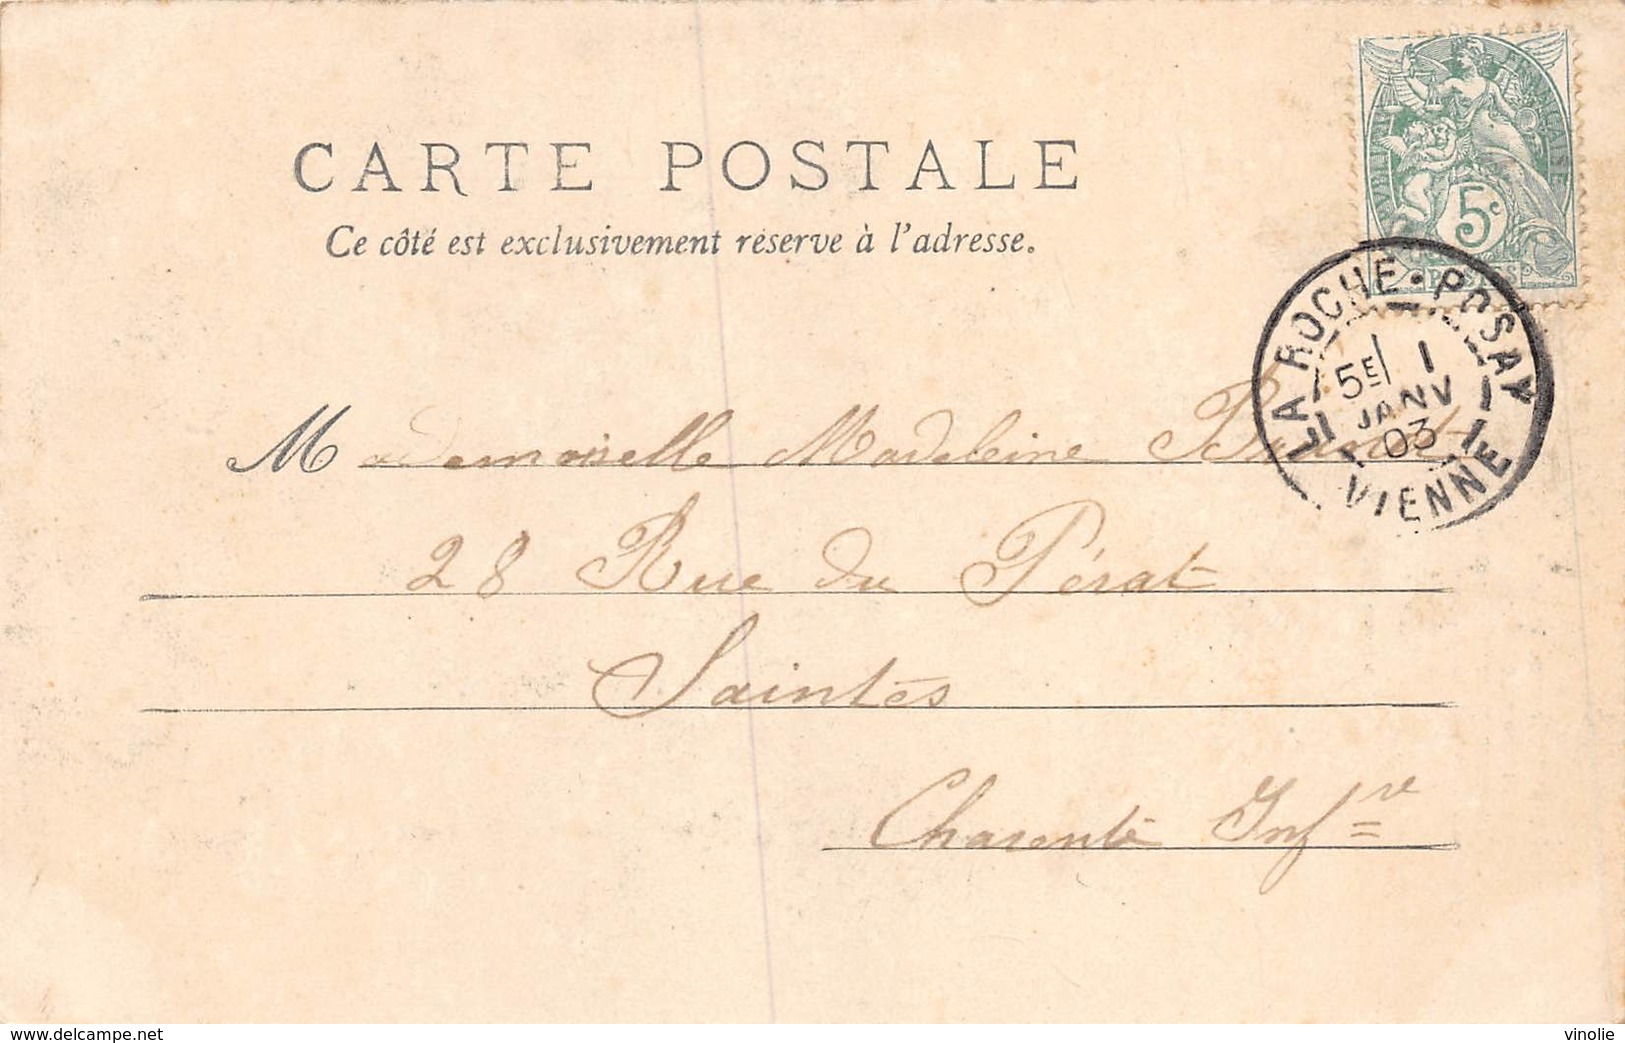 CARTE POSTALE
Ce côté est exclusivement réservé à l'adresse.
RÉPUBLIQUE FRANÇAISE
5c
POSTES
LA ROCHE·POSAY
5E 1
JANV
03
VIENNE
Mademoiselle Madeleine
28 Rue du Pérat
Saintes
Charente Infre
www.delcampe.net
vinolie